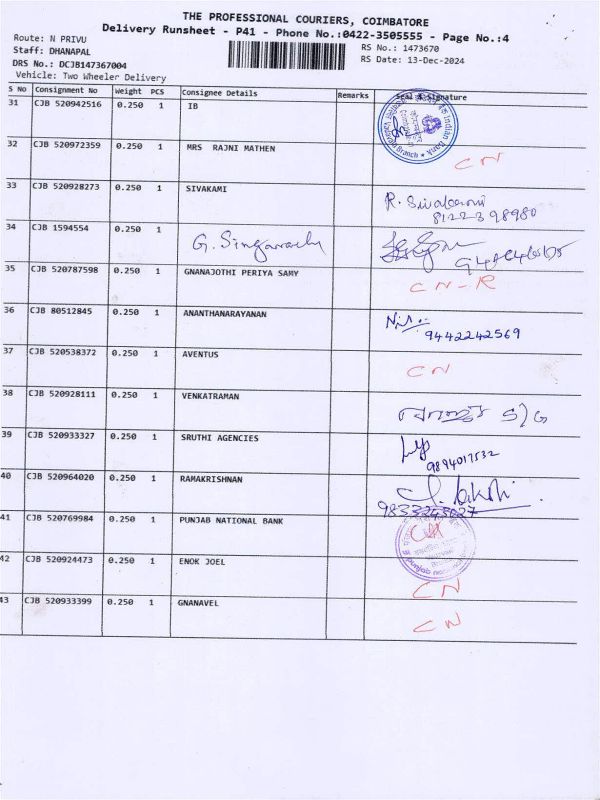 THE PROFESSIONAL COURIERS, COIMBATORE
Delivery Runsheet - P41 - Phone No.:0422-3505555 - Page No.:4
Route: N PRIVU
RS No.: 1473670
Staff: DHANAPAL
RS Date: 13-Dec-2024
DRS No.: DCJB147367004
Vehicle: Two Wheeler Delivery
S No Consignment No Weight PCS Consignee Details Remarks Seal & Signature
31 CJB 520942516 0.250 1 IB
Indian Bank
Branch
32 CJB 520972359 0.250 1 MRS RAJNI MATHEN CN
33 CJB 520928273 0.250 1 SIVAKAMI R. Sivakami
8122398980
34 CJB 1594554 0.250 1 G.
35 CJB 520787598 0.250 1 GNANAJOTHI PERIYA SAMY CN-R
36 CJB 80512845 0.250 1 ANANTHANARAYANAN
9442242569
37 CJB 520538372 0.250 1 AVENTUS CN
38 CJB 520928111 0.250 1 VENKATRAMAN S/G
39 CJB 520933327 0.250 1 SRUTHI AGENCIES
40 CJB 520964020 0.250 1 RAMAKRISHNAN
41 CJB 520769984 0.250 1 PUNJAB NATIONAL BANK CN
42 CJB 520924473 0.250 1 ENOK JOEL CN
43 CJB 520933399 0.250 1 GNANAVEL CN